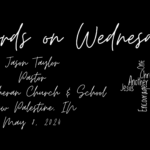 ords on Wednesda
Jason Taylor
Pastor
heran Church & School
w Palestine, IN
May 8, 2024
Jesus
Another
Encourager